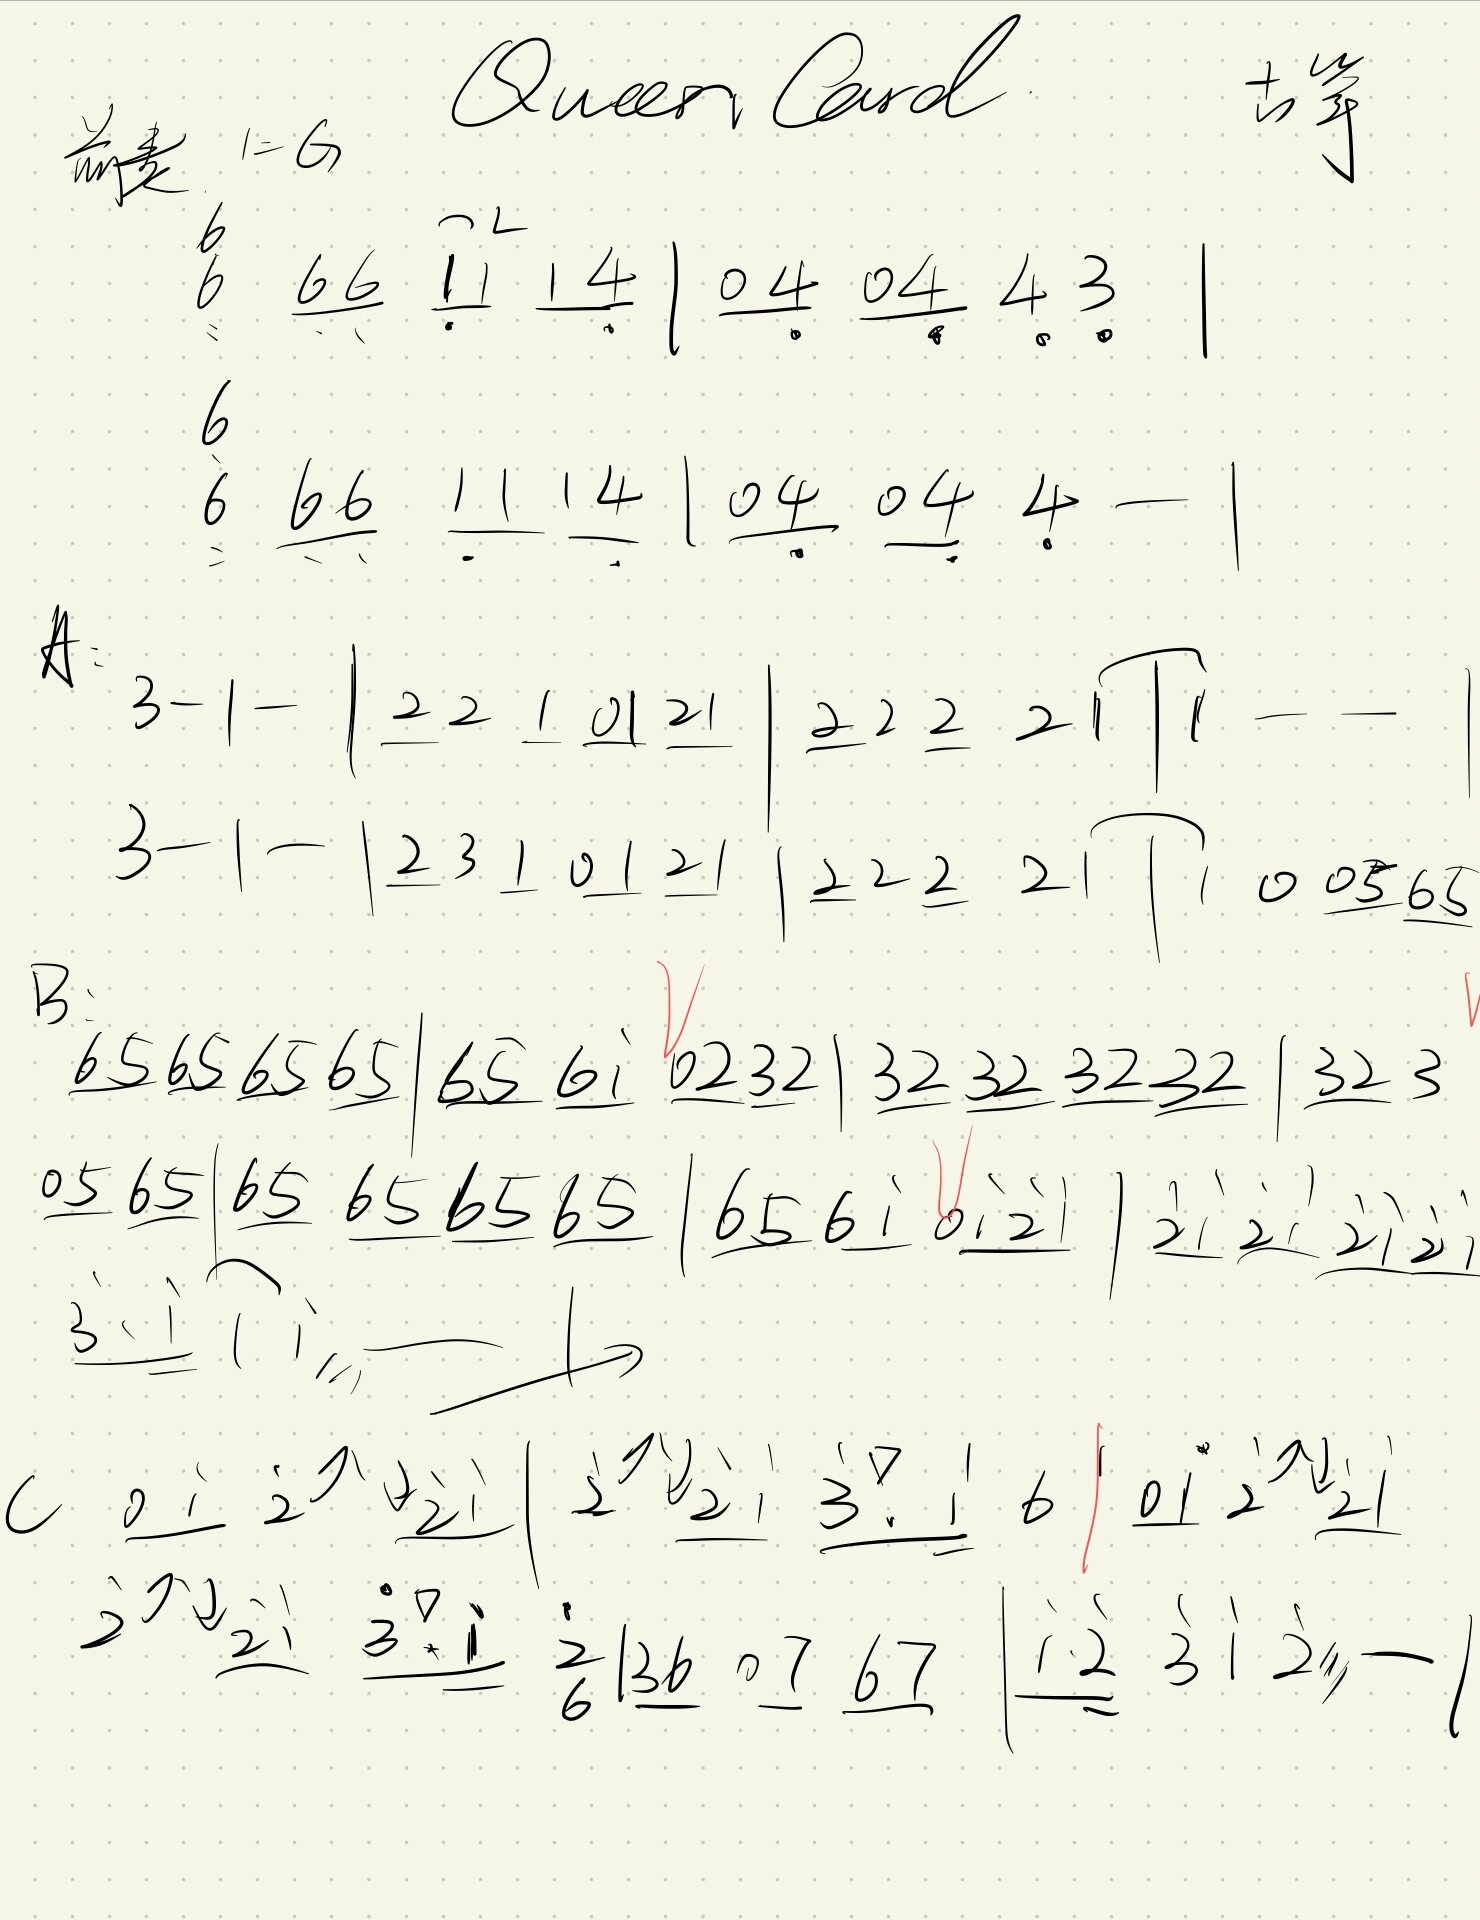 Queen Card
古筝
前奏 1=G
6
6 66 11 14 | 04 04 4 3 |
6
6 66 11 14 | 04 04 4 — |
A:
3 - 1 - | 2 2 1 01 21 | 2 2 2 21 | 1 — — |
3 - 1 - | 2 3 1 01 21 | 2 2 2 21 | 1 0 05 65
B:
65 65 65 65 | 65 6i 02 32 | 32 32 32 32 | 32 3
05 65 | 65 65 65 65 | 65 6i 0i 2i | 2i 2i 2i 2i
3·i | i — |
C 0i 2 2i | 2 2i 3·i 6 | 0i 2 2i
2 2i 3·i 2 | 36 07 67 | i·2 3 i 2 — |
6